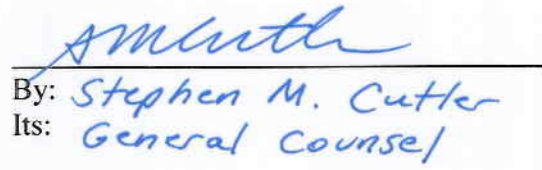 SMCutler
By: Stephen M. Cutler
Its: General Counsel